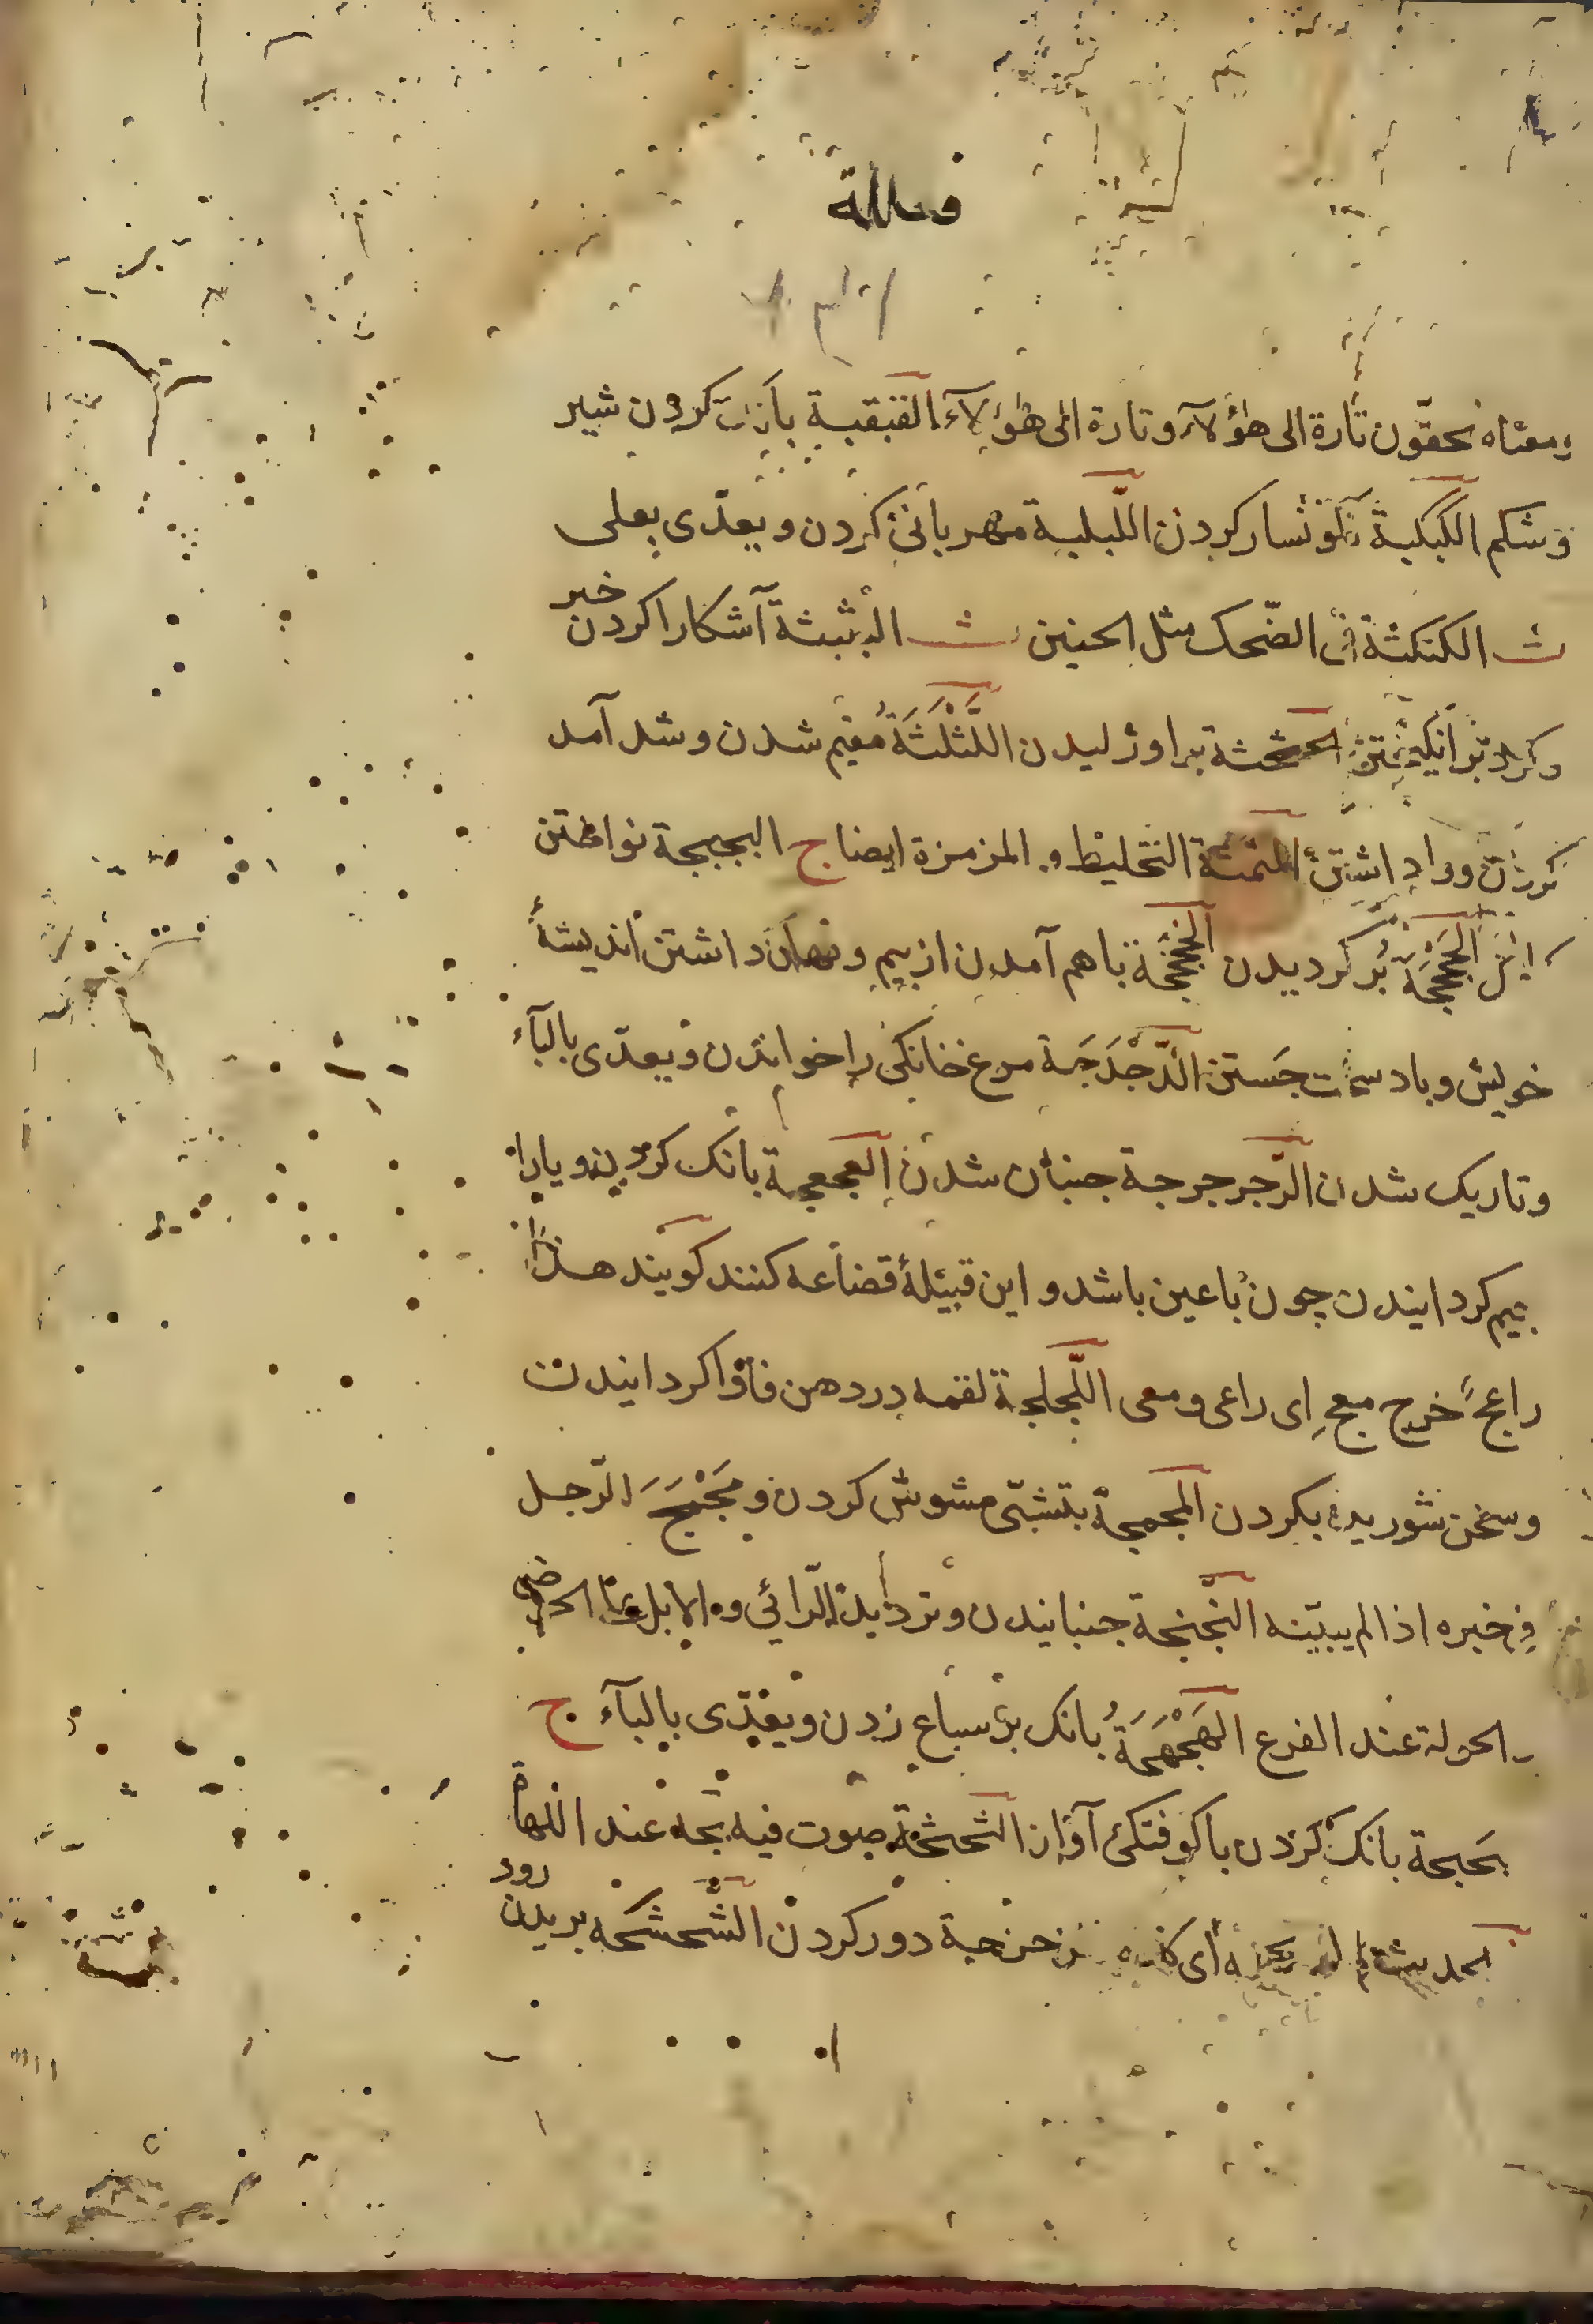 فعللة
ومعناه يحقون تارة الى هؤلآء وتارة الى هؤلآء القبقبة بانك كردن شير
و شكم الكبكبة نكونسار كردن اللّبلبة مهربانى كردن و يعدّى بعلى
ث الكثكثة فى الضّحك مثل الحنين ث البثبثة آشكارا كردن خبر
و كرد برانكيختن الحثحثة براوژليدن اللَّثْلَثَةُ مقيم شدن و شد آمد
كردن و واداشتن المثمثة التخليط و المزمزة ايضا ج البجبجة نواختن
الجججة بر كرديدن الخجخجة باهم آمدن از بيم و نهان داشتن انديشۀ
خويش و باد سخت جستن الدَّجْدَجَة مرغ خانكى را خواندن و يعدّى بالبآء
و تاريك شدن الرّجرجة جنبان شدن العجعجة بانك كردن و يا را
جيم كردانيدن چون با عين باشد و اين قبيلۀ قضاعه كنند كويند هذا
راعجّ خرج معجِ اى راعى و معى اللّجلجة لقمه در دهن فاوا كردانيدن
و سخن شوريده بكردن المجمجة نبشتى مشوش كردن و مَجْمَجَ الرّجل
فى خبره اذا لم يبيّنه النّجنجة جنبانيدن و ترديد الرّائى و الابل عن الحوض
الحولة عند الفزع الهَجْهَجَةُ بانك بر سباع زدن و يعدّى بالبآء ح
بحبحة بانك كردن با كوفتكى آواز الثحثحة صوت فيه بحّة عند اللهاة
زحزحة دور كردن الشَّحشحه بريدن رود